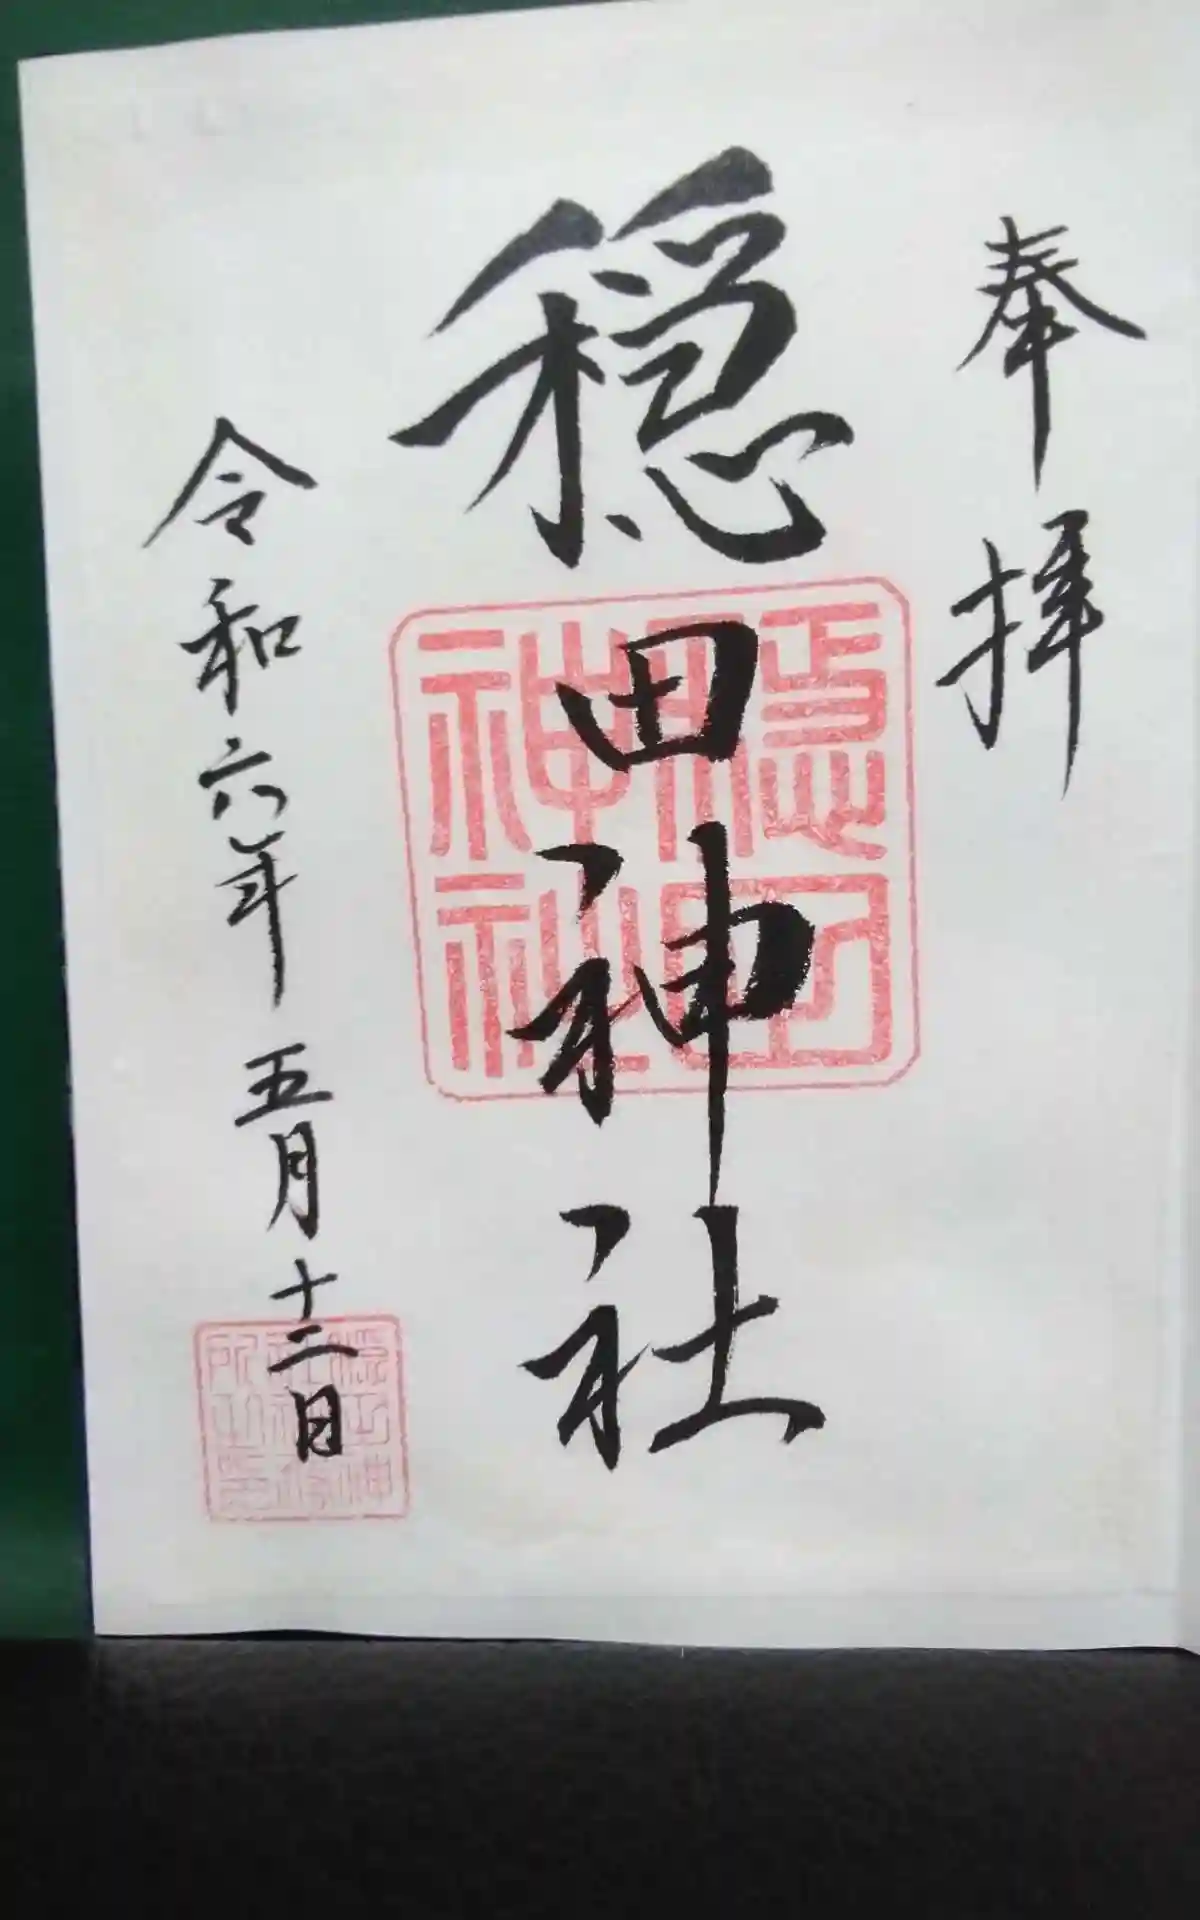 奉拝
穏田神社
穏田神社
令和六年五月十二日